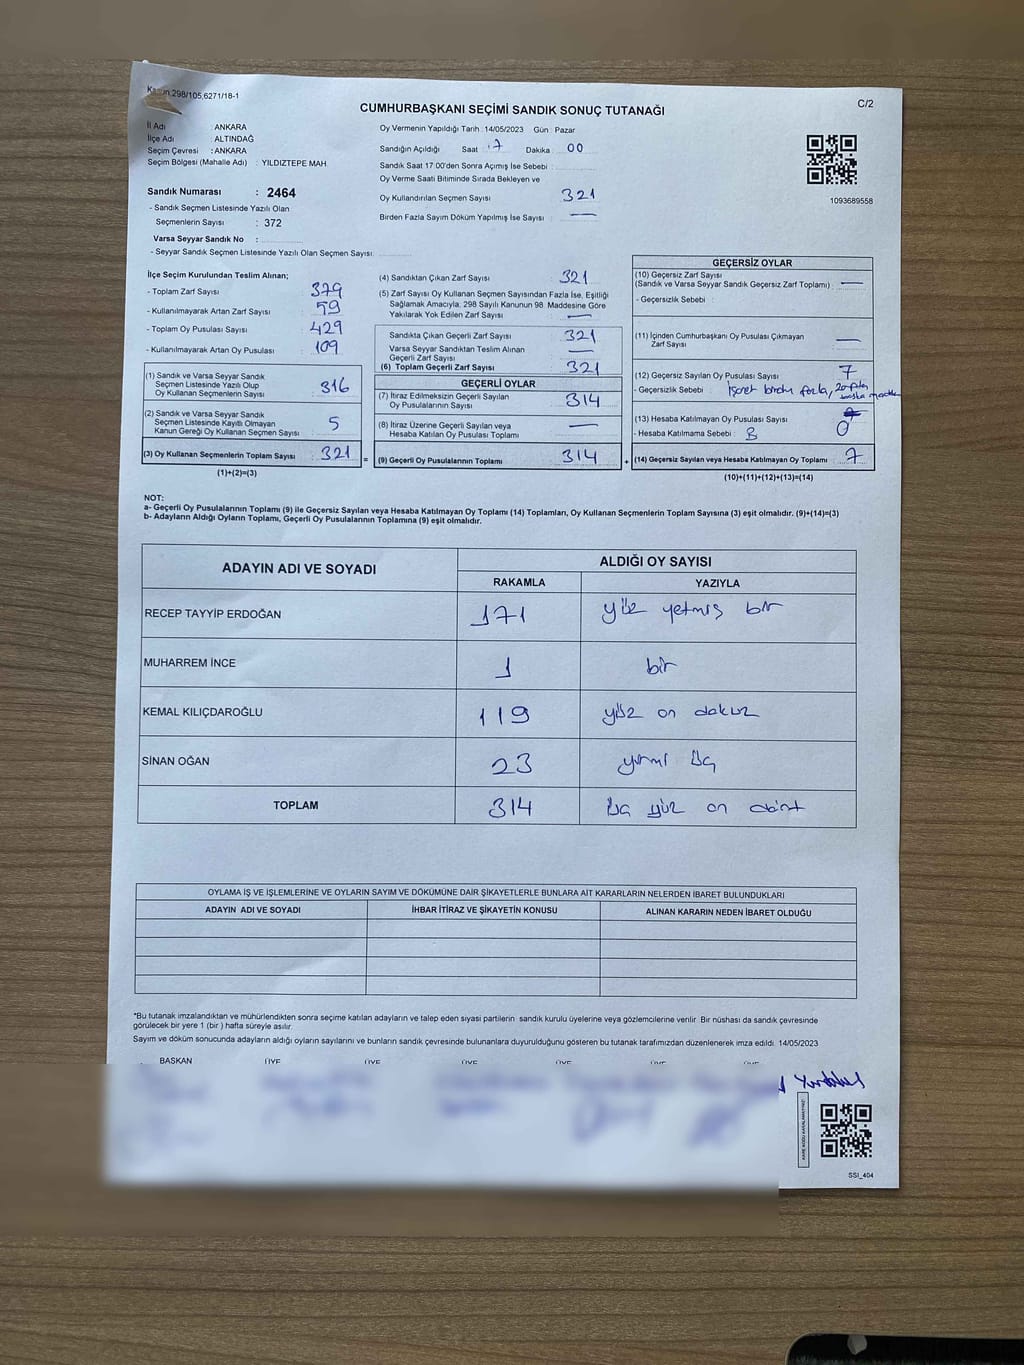 Kanun 298/105,6271/18-1
C/2
CUMHURBAŞKANI SEÇİMİ SANDIK SONUÇ TUTANAĞI
İl Adı : ANKARA
İlçe Adı : ALTINDAĞ
Seçim Çevresi : ANKARA
Seçim Bölgesi (Mahalle Adı) : YILDIZTEPE MAH.
Sandık Numarası : 2464
- Sandık Seçmen Listesinde Yazılı Olan
Seçmenlerin Sayısı : 372
Varsa Seyyar Sandık No :
- Seyyar Sandık Seçmen Listesinde Yazılı Olan Seçmen Sayısı:
Oy Vermenin Yapıldığı Tarih : 14/05/2023 Gün : Pazar
Sandığın Açıldığı Saat 17 Dakika : 00
Sandık Saat 17:00'den Sonra Açımış İse Sebebi :
Oy Verme Saati Bitiminde Sırada Bekleyen ve
Oy Kullandırılan Seçmen Sayısı : 321
Birden Fazla Sayım Döküm Yapılmış İse Sayısı : —
1093689558
İlçe Seçim Kurulundan Teslim Alınan;
- Toplam Zarf Sayısı : 379
- Kullanılmayarak Artan Zarf Sayısı : 59
- Toplam Oy Pusulası Sayısı : 429
- Kullanılmayarak Artan Oy Pusulası : 109
(1) Sandık ve Varsa Seyyar Sandık
Seçmen Listesinde Yazılı Olup
Oy Kullanan Seçmenlerin Sayısı : 316
(2) Sandık ve Varsa Seyyar Sandık
Seçmen Listesinde Kayıtlı Olmayan
Kanun Gereği Oy Kullanan Seçmen Sayısı : 5
(3) Oy Kullanan Seçmenlerin Toplam Sayısı : 321 =
(1)+(2)=(3)
(4) Sandıktan Çıkan Zarf Sayısı : 321
(5) Zarf Sayısı Oy Kullanan Seçmen Sayısından Fazla İse, Eşitliği
Sağlamak Amacıyla; 298 Sayılı Kanunun 98. Maddesine Göre
Yakılarak Yok Edilen Zarf Sayısı : —
Sandıkta Çıkan Geçerli Zarf Sayısı : 321
Varsa Seyyar Sandıktan Teslim Alınan
Geçerli Zarf Sayısı : —
(6) Toplam Geçerli Zarf Sayısı : 321
GEÇERLİ OYLAR
(7) İtiraz Edilmeksizin Geçerli Sayılan
Oy Pusulalarının Sayısı : 314
(8) İtiraz Üzerine Geçerli Sayılan veya
Hesaba Katılan Oy Pusulası Toplamı : —
(9) Geçerli Oy Pusulalarının Toplamı : 314 +
GEÇERSİZ OYLAR
(10) Geçersiz Zarf Sayısı
(Sandık ve Varsa Seyyar Sandık Geçersiz Zarf Toplamı) : —
- Geçersizlik Sebebi :
(11) İçinden Cumhurbaşkanı Oy Pusulası Çıkmayan
Zarf Sayısı : —
(12) Geçersiz Sayılan Oy Pusulası Sayısı : 7
- Geçersizlik Sebebi : fazla,
(13) Hesaba Katılmayan Oy Pusulası Sayısı : 0
- Hesaba Katılmama Sebebi :
(14) Geçersiz Sayılan veya Hesaba Katılmayan Oy Toplamı : 7
(10)+(11)+(12)+(13)=(14)
NOT:
a- Geçerli Oy Pusulalarının Toplamı (9) ile Geçersiz Sayılan veya Hesaba Katılmayan Oy Toplamı (14) Toplamları, Oy Kullanan Seçmenlerin Toplam Sayısına (3) eşit olmalıdır. (9)+(14)=(3)
b- Adayların Aldığı Oyların Toplamı, Geçerli Oy Pusulalarının Toplamına (9) eşit olmalıdır.
ADAYIN ADI VE SOYADI ALDIĞI OY SAYISI
RAKAMLA YAZIYLA
RECEP TAYYİP ERDOĞAN 171 yüz yetmiş bir
MUHARREM İNCE 1 bir
KEMAL KILIÇDAROĞLU 119 yüz on dokuz
SİNAN OĞAN 23 yirmi üç
TOPLAM 314 üç yüz on dört
OYLAMA İŞ VE İŞLEMLERİNE VE OYLARIN SAYIM VE DÖKÜMÜNE DAİR ŞİKAYETLERLE BUNLARA AİT KARARLARIN NELERDEN İBARET BULUNDUKLARI
ADAYIN ADI VE SOYADI İHBAR İTİRAZ VE ŞİKAYETİN KONUSU ALINAN KARARIN NEDEN İBARET OLDUĞU
*Bu tutanak imzalandıktan ve mühürlendikten sonra seçime katılan adayların ve talep eden siyasi partilerin sandık kurulu üyelerine veya gözlemcilerine verilir. Bir nüshası da sandık çevresinde
görülecek bir yere 1 (bir) hafta süreyle asılır.
Sayım ve döküm sonucunda adayların aldığı oyların sayılarını ve bunların sandık çevresinde bulunanlara duyurulduğunu gösteren bu tutanak tarafımızdan düzenlenerek imza edildi. 14/05/2023
BAŞKAN ÜYE ÜYE ÜYE ÜYE ÜYE ÜYE
SSI_404